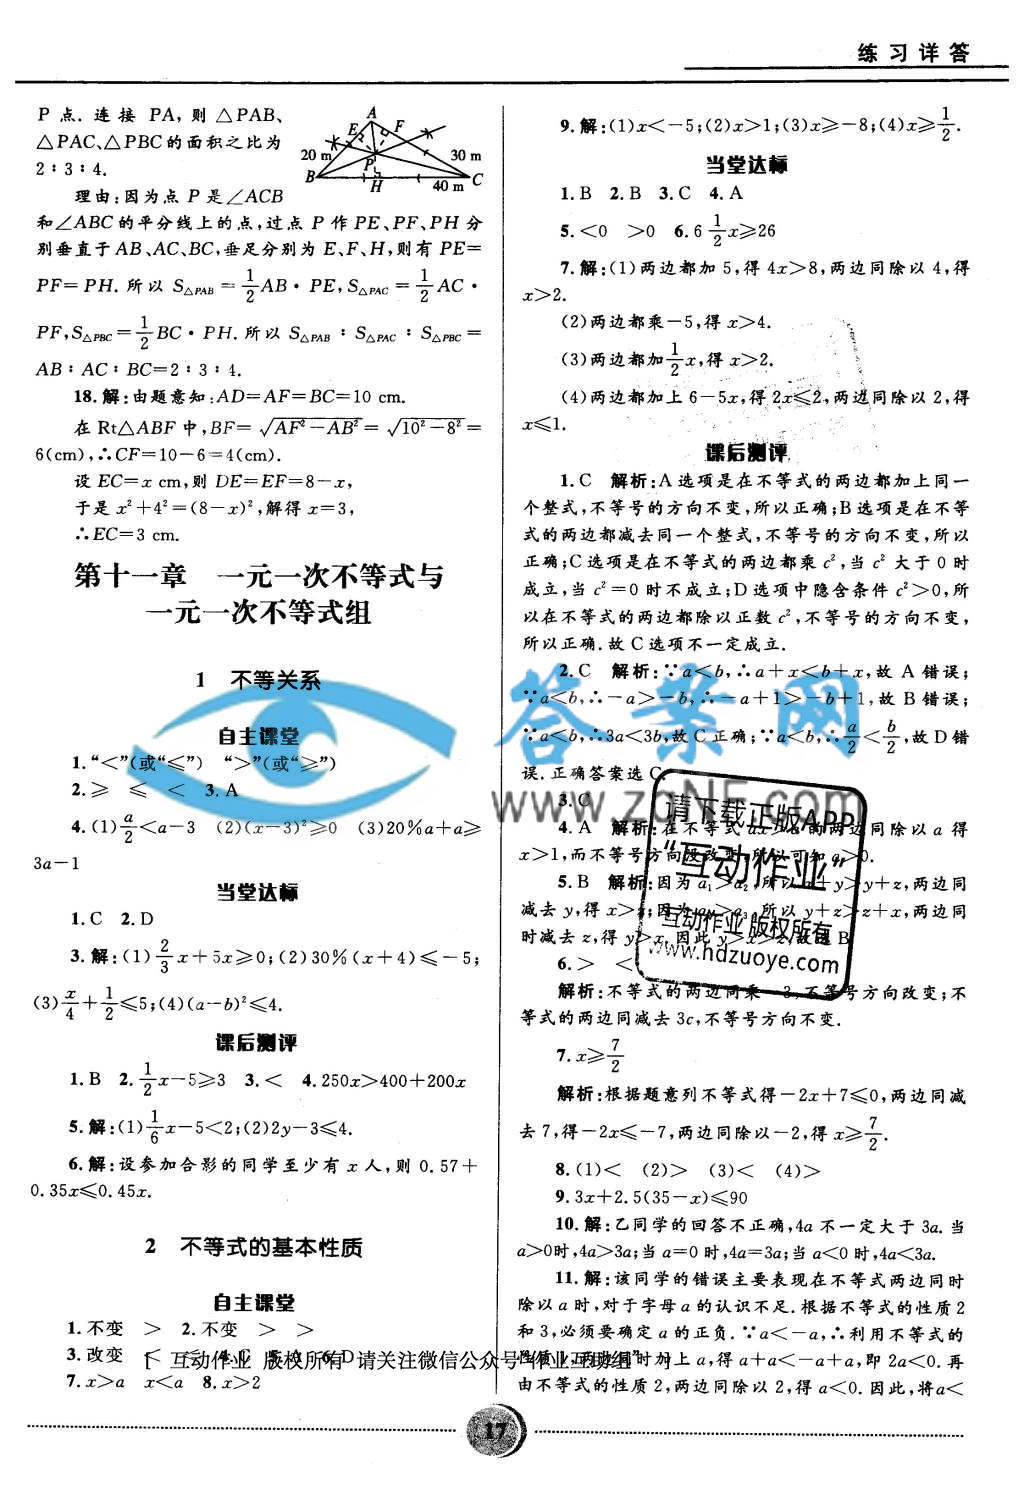 练习详答
P点.连接PA,则△PAB、
△PAC、△PBC的面积之比为
2∶3∶4.
A
E F
20 m P 30 m
B H 40 m C
理由:因为点P是∠ACB
和∠ABC的平分线上的点,过点P作PE、PF、PH分
别垂直于AB、AC、BC,垂足分别为E、F、H,则有PE=
PF=PH.所以S△PAB=1/2AB·PE,S△PAC=1/2AC·
PF,S△PBC=1/2BC·PH.所以S△PAB∶S△PAC∶S△PBC=
AB∶AC∶BC=2∶3∶4.
18.解:由题意知:AD=AF=BC=10 cm.
在Rt△ABF中,BF=√(AF²-AB²)=√(10²-8²)=
6(cm),∴CF=10-6=4(cm).
设EC=x cm,则DE=EF=8-x,
于是x²+4²=(8-x)²,解得x=3,
∴EC=3 cm.
第十一章 一元一次不等式与
一元一次不等式组
1 不等关系
自主课堂
1.“<”(或“≤”) “>”(或“≥”)
2.≥ ≤ < 3.A
4.(1)a/2<a-3 (2)(x-3)²≥0 (3)20%a+a≥
3a-1
当堂达标
1.C 2.D
3.解:(1)2/3x+5x≥0;(2)30%(x+4)≤-5;
(3)x/4+1/2≤5;(4)(a-b)²≤4.
课后测评
1.B 2.1/2x-5≥3 3.< 4.250x>400+200x
5.解:(1)1/6x-5<2;(2)2y-3≤4.
6.解:设参加合影的同学至少有x人,则0.57+
0.35x≤0.45x.
2 不等式的基本性质
自主课堂
1.不变 > 2.不变 > >
3.改变 < < 4.C 5.A 6.D
7.x>a x<a 8.x>2
9.解:(1)x<-5;(2)x>1;(3)x≥-8;(4)x≥1/2.
当堂达标
1.B 2.B 3.C 4.A
5.<0 >0 6.6 1/2x≥26
7.解:(1)两边都加5,得4x>8,两边同除以4,得
x>2.
(2)两边都乘-5,得x>4.
(3)两边都加1/2x,得x>2.
(4)两边都加上6-5x,得2x≤2,两边同除以2,得
x≤1.
课后测评
1.C 解析:A选项是在不等式的两边都加上同一
个整式,不等号的方向不变,所以正确;B选项是在不等
式的两边都减去同一个整式,不等号的方向不变,所以
正确;C选项是在不等式的两边都乘c²,当c²大于0时
成立,当c²=0时不成立;D选项中隐含条件c²>0,所
以在不等式的两边都除以正数c²,不等号的方向不变,
所以正确.故C选项不一定成立.
2.C 解析:∵a<b,∴a+x<b+x,故A错误;
∵a<b,∴-a>-b,∴-a+1>-b+1,故B错误;
∵a<b,∴3a<3b,故C正确;∵a<b,∴a/2<b/2,故D错
误.正确答案选C.
3.C
4.A 解析:在不等式ax>a的两边同除以a得
x>1,而不等号方向没改变,所以可知a>0.
5.B 解析:因为a₁>a₂,所以x+y>y+z,两边同
减去y,得x>z;因为a₁>a₃,所以y+z>z+x,两边同
时减去z,得y>x.因此y>x>z.故选B
6.> <
解析:不等式的两边同乘-3,不等号方向改变;不
等式的两边同减去3c,不等号方向不变.
7.x≥7/2
解析:根据题意列不等式得-2x+7≤0,两边同减
去7,得-2x≤-7,两边同除以-2,得x≥7/2.
8.(1)< (2)> (3)< (4)>
9.3x+2.5(35-x)≤90
10.解:乙同学的回答不正确,4a不一定大于3a.当
a>0时,4a>3a;当a=0时,4a=3a;当a<0时,4a<3a.
11.解:该同学的错误主要表现在不等式两边同时
除以a时,对于字母a的认识不足.根据不等式的性质2
和3,必须要确定a的正负.∵a<-a,∴利用不等式的
性质1,两边同时加上a,得a+a<-a+a,即2a<0.再
由不等式的性质2,两边同除以2,得a<0.因此,将a<
答案网
www.zqNF.com
请下载正版APP
“互动作业”
互动作业 版权所有
www.hdzuoye.com
互动作业 版权所有 请关注微信公众号“作业互助组”
17